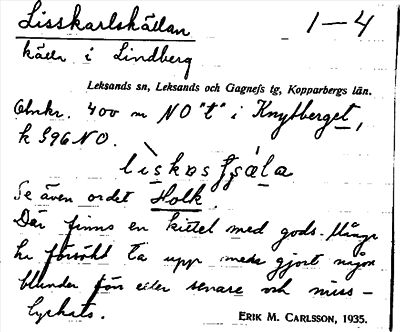 Lisskarlskällan 1–4
källa i Lindberg
Leksands sn, Leksands och Gagnefs tg, Kopparbergs län.
Omkr. 400 m NO "t" i Knytberget,
k 396 NO.
Se även ordet Holk.
Där finns en kittel med gods. Många
ha försökt ta upp men gjort någon
blunder förr eller senare och miss-
lyckats.
ERIK M. CARLSSON, 1935.